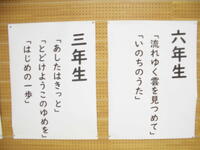 六年生
「流れゆく雲を見つめて」
「いのちのうた」
三年生
「あしたはきっと」
「とどけようこのゆめを」
「はじめの一歩」